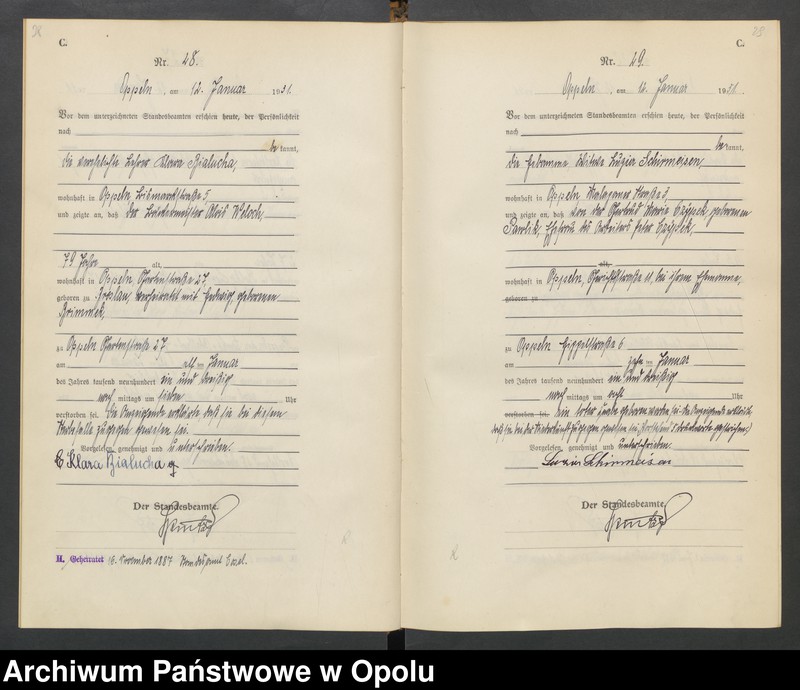 C.
Nr. 28.
Oppeln, am 12. Januar 1931.
Vor dem unterzeichneten Standesbeamten erschien heute, der Persönlichkeit
nach
bekannt,
die verehelichte Klara Bialucha,
wohnhaft in Oppeln, Bismarckstraße 5
und zeigte an, daß der Alois Weloch,
79 Jahre alt,
wohnhaft in Oppeln, 27,
geboren zu verheiratet mit Hedwig, geborenen
Grimmek,
zu Oppeln 27
am elf ten Januar
des Jahres tausend neunhundert ein und dreißig
nach mittags um sieben Uhr
verstorben sei. Die Anzeigende erklärte, daß sie bei diesem
Sterbefalle zugegen gewesen sei.
Vorgelesen, genehmigt und unterschrieben.
Klara Bialucha
Der Standesbeamte.
H. Geheiratet 16. November 1887 Standesamt Cosel.
29
C.
Nr. 29.
Oppeln, am 12. Januar 1931.
Vor dem unterzeichneten Standesbeamten erschien heute, der Persönlichkeit
nach
bekannt,
die Hebamme, Witwe Luzia Schirmeisen,
wohnhaft in Oppeln, Straße 3,
und zeigte an, daß von der Maria Czippek geborenen
Pawlik, Ehefrau des Arbeiters Peter Czippek,
alt,
wohnhaft in Oppeln, 11, bei ihrem Ehemanne,
geboren zu
zu Oppeln 6
am zehn ten Januar
des Jahres tausend neunhundert ein und dreißig
nach mittags um sechs Uhr
verstorben sei. ein toter Knabe geboren worden sei. Die Anzeigende erklärte,
daß sie bei der Niederkunft zugegen gewesen sei.
Vorgelesen, genehmigt und unterschrieben.
Luzia Schirmeisen
Der Standesbeamte.
Archiwum Państwowe w Opolu